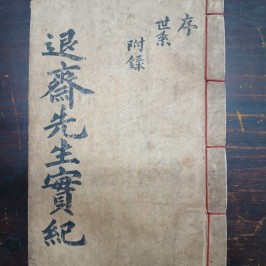 序
世系
附錄
退齋先生實紀